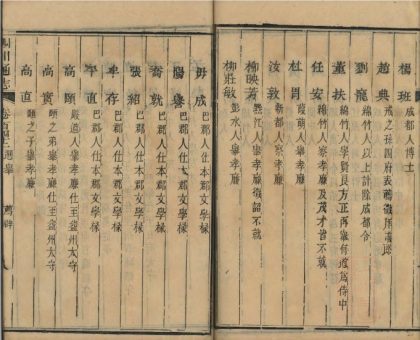 楊班 成都人博士
趙典 戒之孫四府表薦徵爲議郎
劉寵 綿竹人以上計除成都令
董扶 綿竹人學賢良方正再舉有道爲侍中
任安 綿竹人察孝廉及茂才皆不就
杜眞 綿竹人察孝廉
汝敦 新都人察孝廉
柳映芳 綦江人舉孝廉徵詔不就
柳莊敏 彭水人舉孝廉
毋成 巴郡人仕本郡文學掾
陽譽 巴郡人仕本郡文學掾
喬就 巴郡人仕本郡文學掾
張紹 巴郡人仕本郡文學掾
牟存 巴郡人仕本郡文學掾
平直 巴郡人仕本郡文學掾
高頤 嚴道人舉孝廉仕至益州太守
高實 頤之弟舉孝廉仕至益州太守
高直 頤之子舉孝廉
四川通志 卷百四十二選舉 薦辟